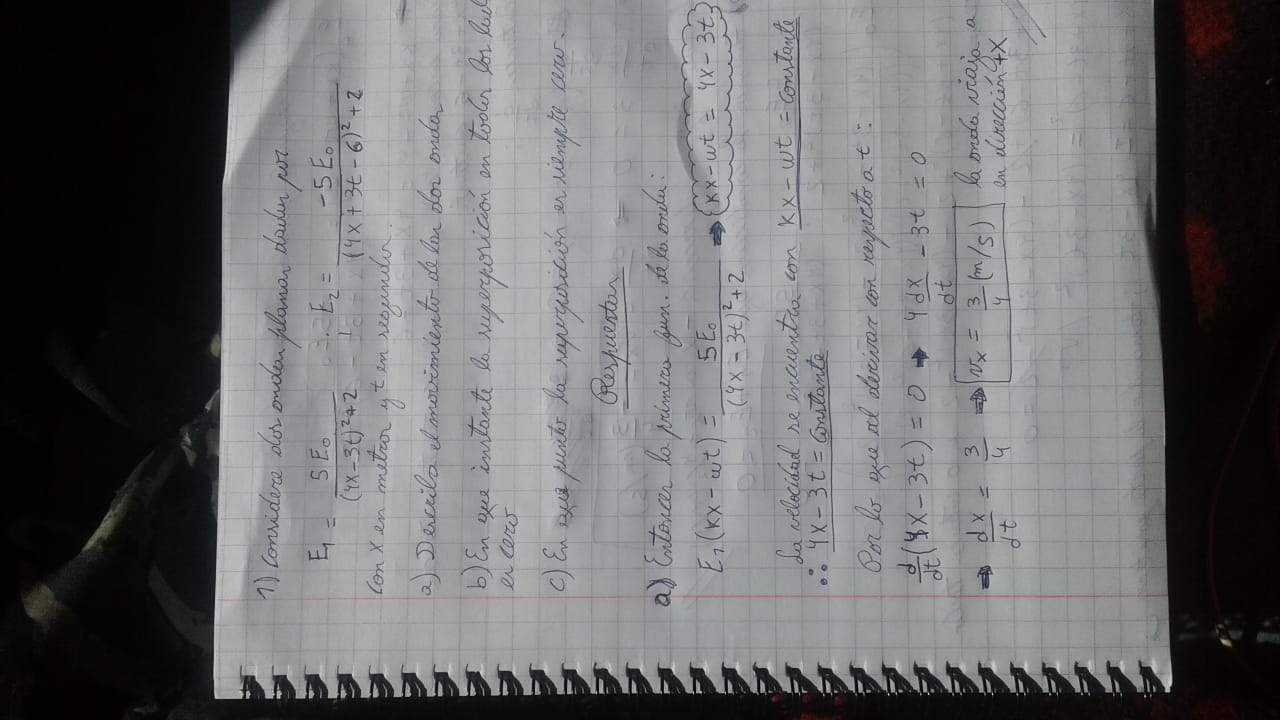 1) Considere dos ondas planas dadas por
E₁ = 5E₀ / (4x-3t)²+2 ; E₂ = -5E₀ / (4x+3t-6)²+2
Con x en metros y t en segundos.
a) Describa el movimiento de las dos onda
b) En que instante la superposición en todos los
es cero
c) En que punto la superposición es siempre cero.
Respuestas
a) Entonces la primera fun. de la onda:
E₁(kx-wt) = 5E₀ / (4x-3t)²+2 ➡ {kx-wt = 4x-3t}
La velocidad se encuentra con kx-wt = constante
∴ 4x-3t = constante
Por lo que al derivar con respecto a t:
d/dt(4x-3t) = 0 ➡ 4 dx/dt - 3t = 0
➡ dx/dt = 3/4 ➡ vₓ = 3/4 (m/s) la onda viaja a
en dirección +x